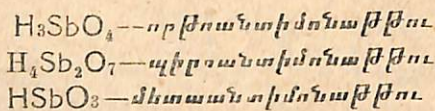 H₃SbO₄—օրթոանտիմոնաթթու
H₄Sb₂O₇—պիրոանտիմոնաթթու
HSbO₃—մետաանտիմոնաթթու